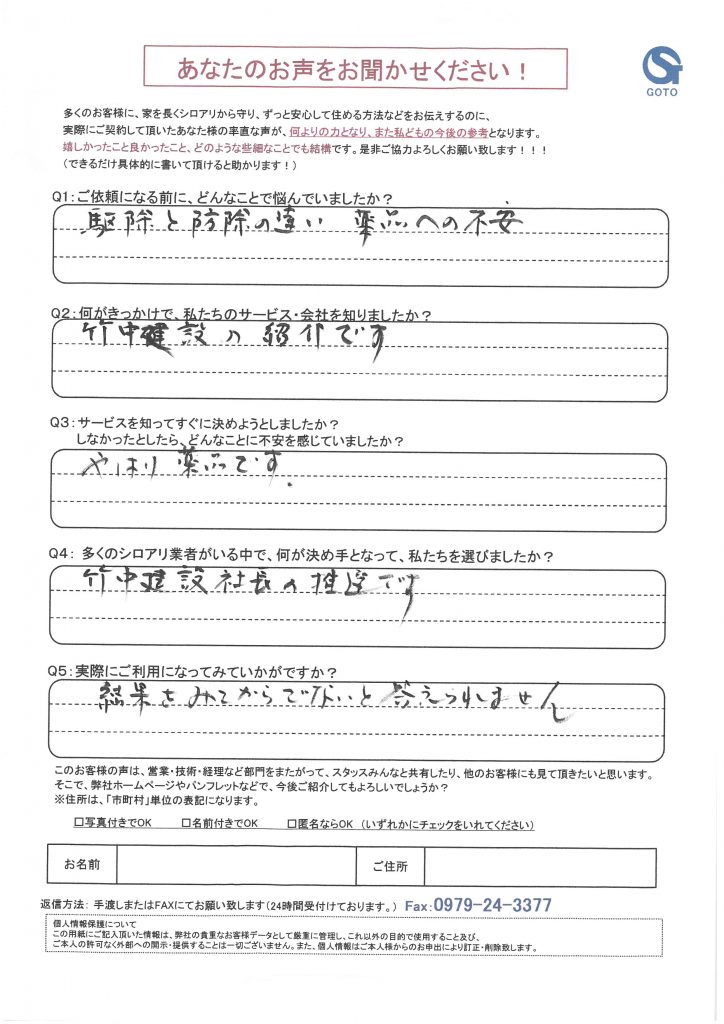 あなたのお声をお聞かせください！
GOTO
多くのお客様に、家を長くシロアリから守り、ずっと安心して住める方法などをお伝えするのに、
実際にご契約して頂いたあなた様の率直な声が、何よりの力となり、また私どもの今後の参考となります。
嬉しかったこと良かったこと、どのような些細なことでも結構です。是非ご協力よろしくお願い致します！！！
（できるだけ具体的に書いて頂けると助かります！）
Q1：ご依頼になる前に、どんなことで悩んでいましたか？
駆除と防除の違い 薬品への不安
Q2：何がきっかけで、私たちのサービス・会社を知りましたか？
竹中建設の紹介です
Q3：サービスを知ってすぐに決めようとしましたか？
しなかったとしたら、どんなことに不安を感じていましたか？
やはり薬品です.
Q4： 多くのシロアリ業者がいる中で、何が決め手となって、私たちを選びましたか？
竹中建設社長の推薦です
Q5：実際にご利用になってみていかがですか？
結果をみてからでないと答えられません
このお客様の声は、営業・技術・経理など部門をまたがって、スタッスみんなと共有したり、他のお客様にも見て頂きたいと思います。
そこで、弊社ホームページやパンフレットなどで、今後ご紹介してもよろしいでしょうか？
※住所は、「市町村」単位の表記になります。
□写真付きでOK □名前付きでOK □匿名ならOK （いずれかにチェックをいれてください）
お名前 ご住所
返信方法： 手渡しまたはFAXにてお願い致します（24時間受付けております。） Fax：0979-24-3377
個人情報保護について
この用紙にご記入頂いた情報は、弊社の貴重なお客様データとして厳重に管理し、これ以外の目的で使用すること及び、
ご本人の許可なく外部への開示・提供することは一切ございません。また、個人情報はご本人様からのお申出により訂正・削除致します。